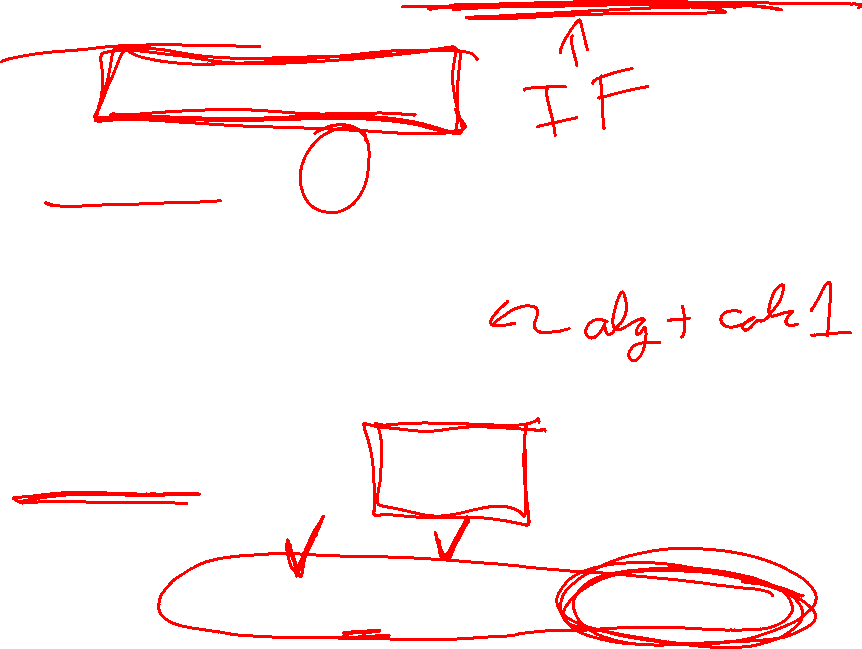 IF
alg + calc 1